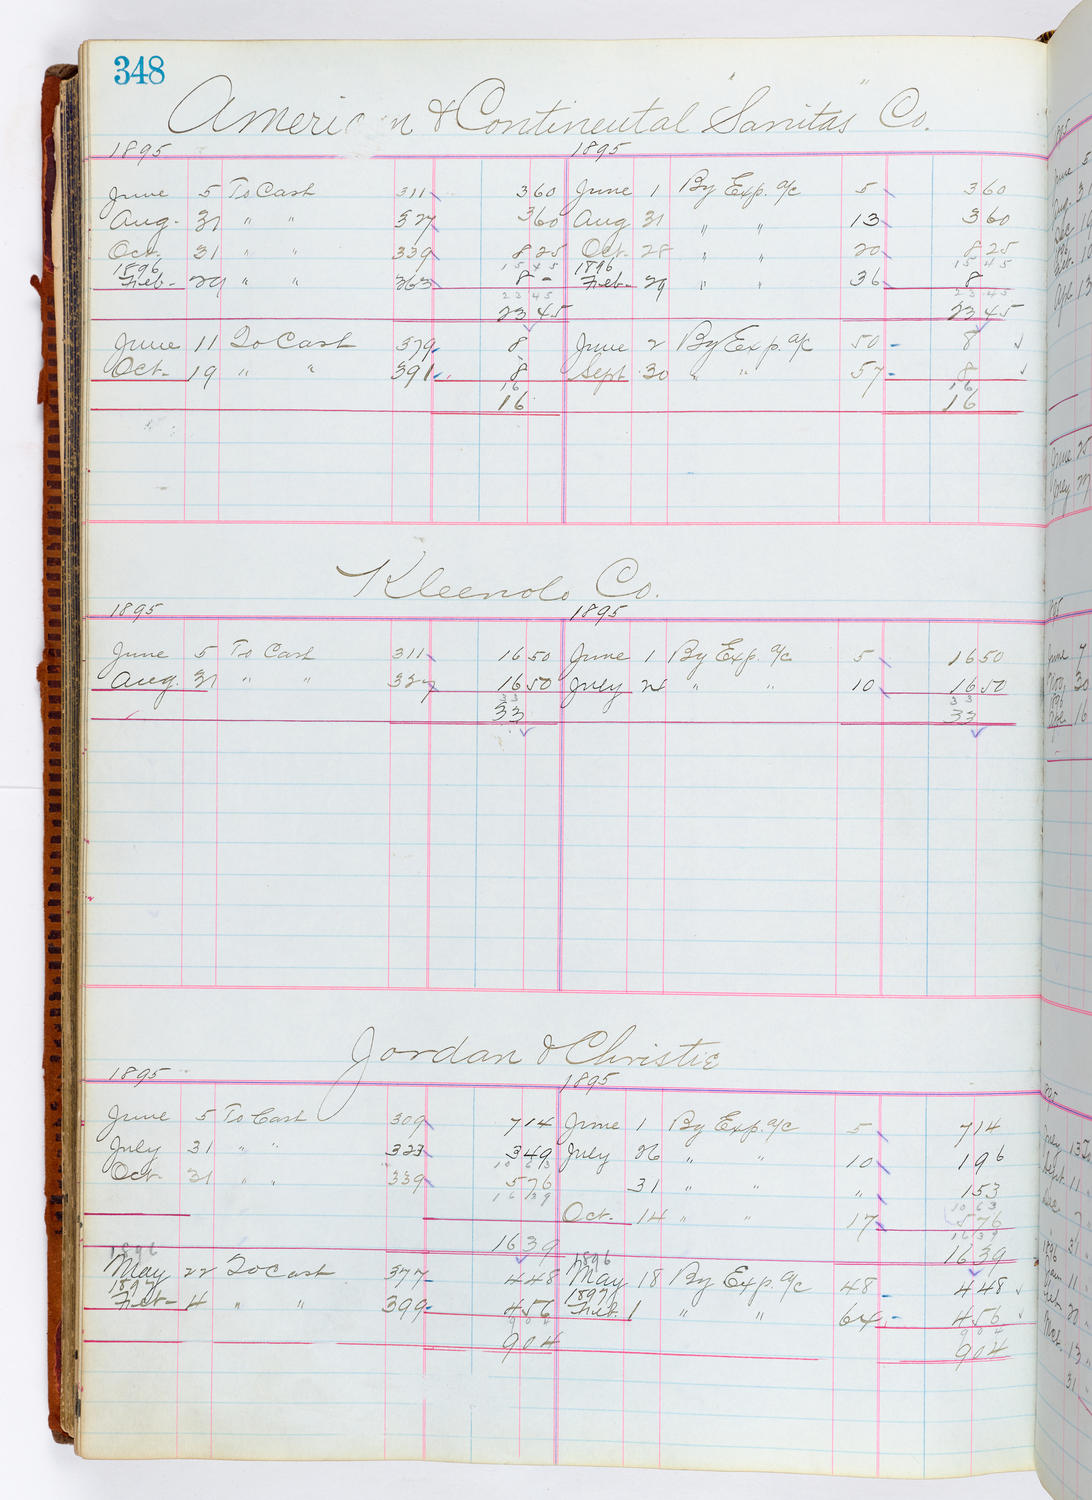 348
American & Continental "Sanitas" Co.
1895 1895
June 5 To Cash 311 3 60 June 1 By Exp. a/c 5 3 60
Aug. 31 " " 327 3 60 Aug 31 " " 13 3 60
Oct. 31 " " 339 8 25 Oct. 28 " " 20 8 25
15 45 15 45
1896 1896
Feb. 29 " " 363 8 - Feb. 29 " " 36 8
23 45 23 45
23 45 23 45
June 11 To Cash 379 8 June 2 By Exp. a/c 50 8
Oct. 19 " " 391 8 Sept 30 " " 57 8
16 16
16 16
Kleenolo Co.
1895 1895
June 5 To Cash 311 16 50 June 1 By Exp. a/c 5 16 50
Aug. 31 " " 327 16 50 July 24 " " 10 16 50
33 33
33 33
Jordan & Christie
1895 1895
June 5 To Cash 309 7 14 June 1 By Exp. a/c 5 7 14
July 31 " " 323 3 49 July 26 " " 10 1 96
10 63
Oct. 31 " " 339 5 76 31 " " " 1 53
16 39 10 63
Oct. 14 " " 17 5 76
16 39
16 39 16 39
1896 1896
May 22 To Cash 377 4 48 May 18 By Exp. a/c 48 4 48
1897 1897
Feb. 4 " " 399 4 56 Feb. 1 " " 64 4 56
9 04 9 04
9 04 9 04